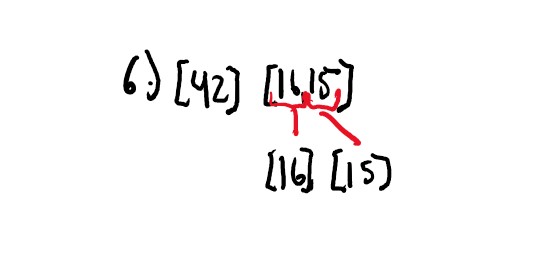 6.) [42] [16,15]
[16] [15]